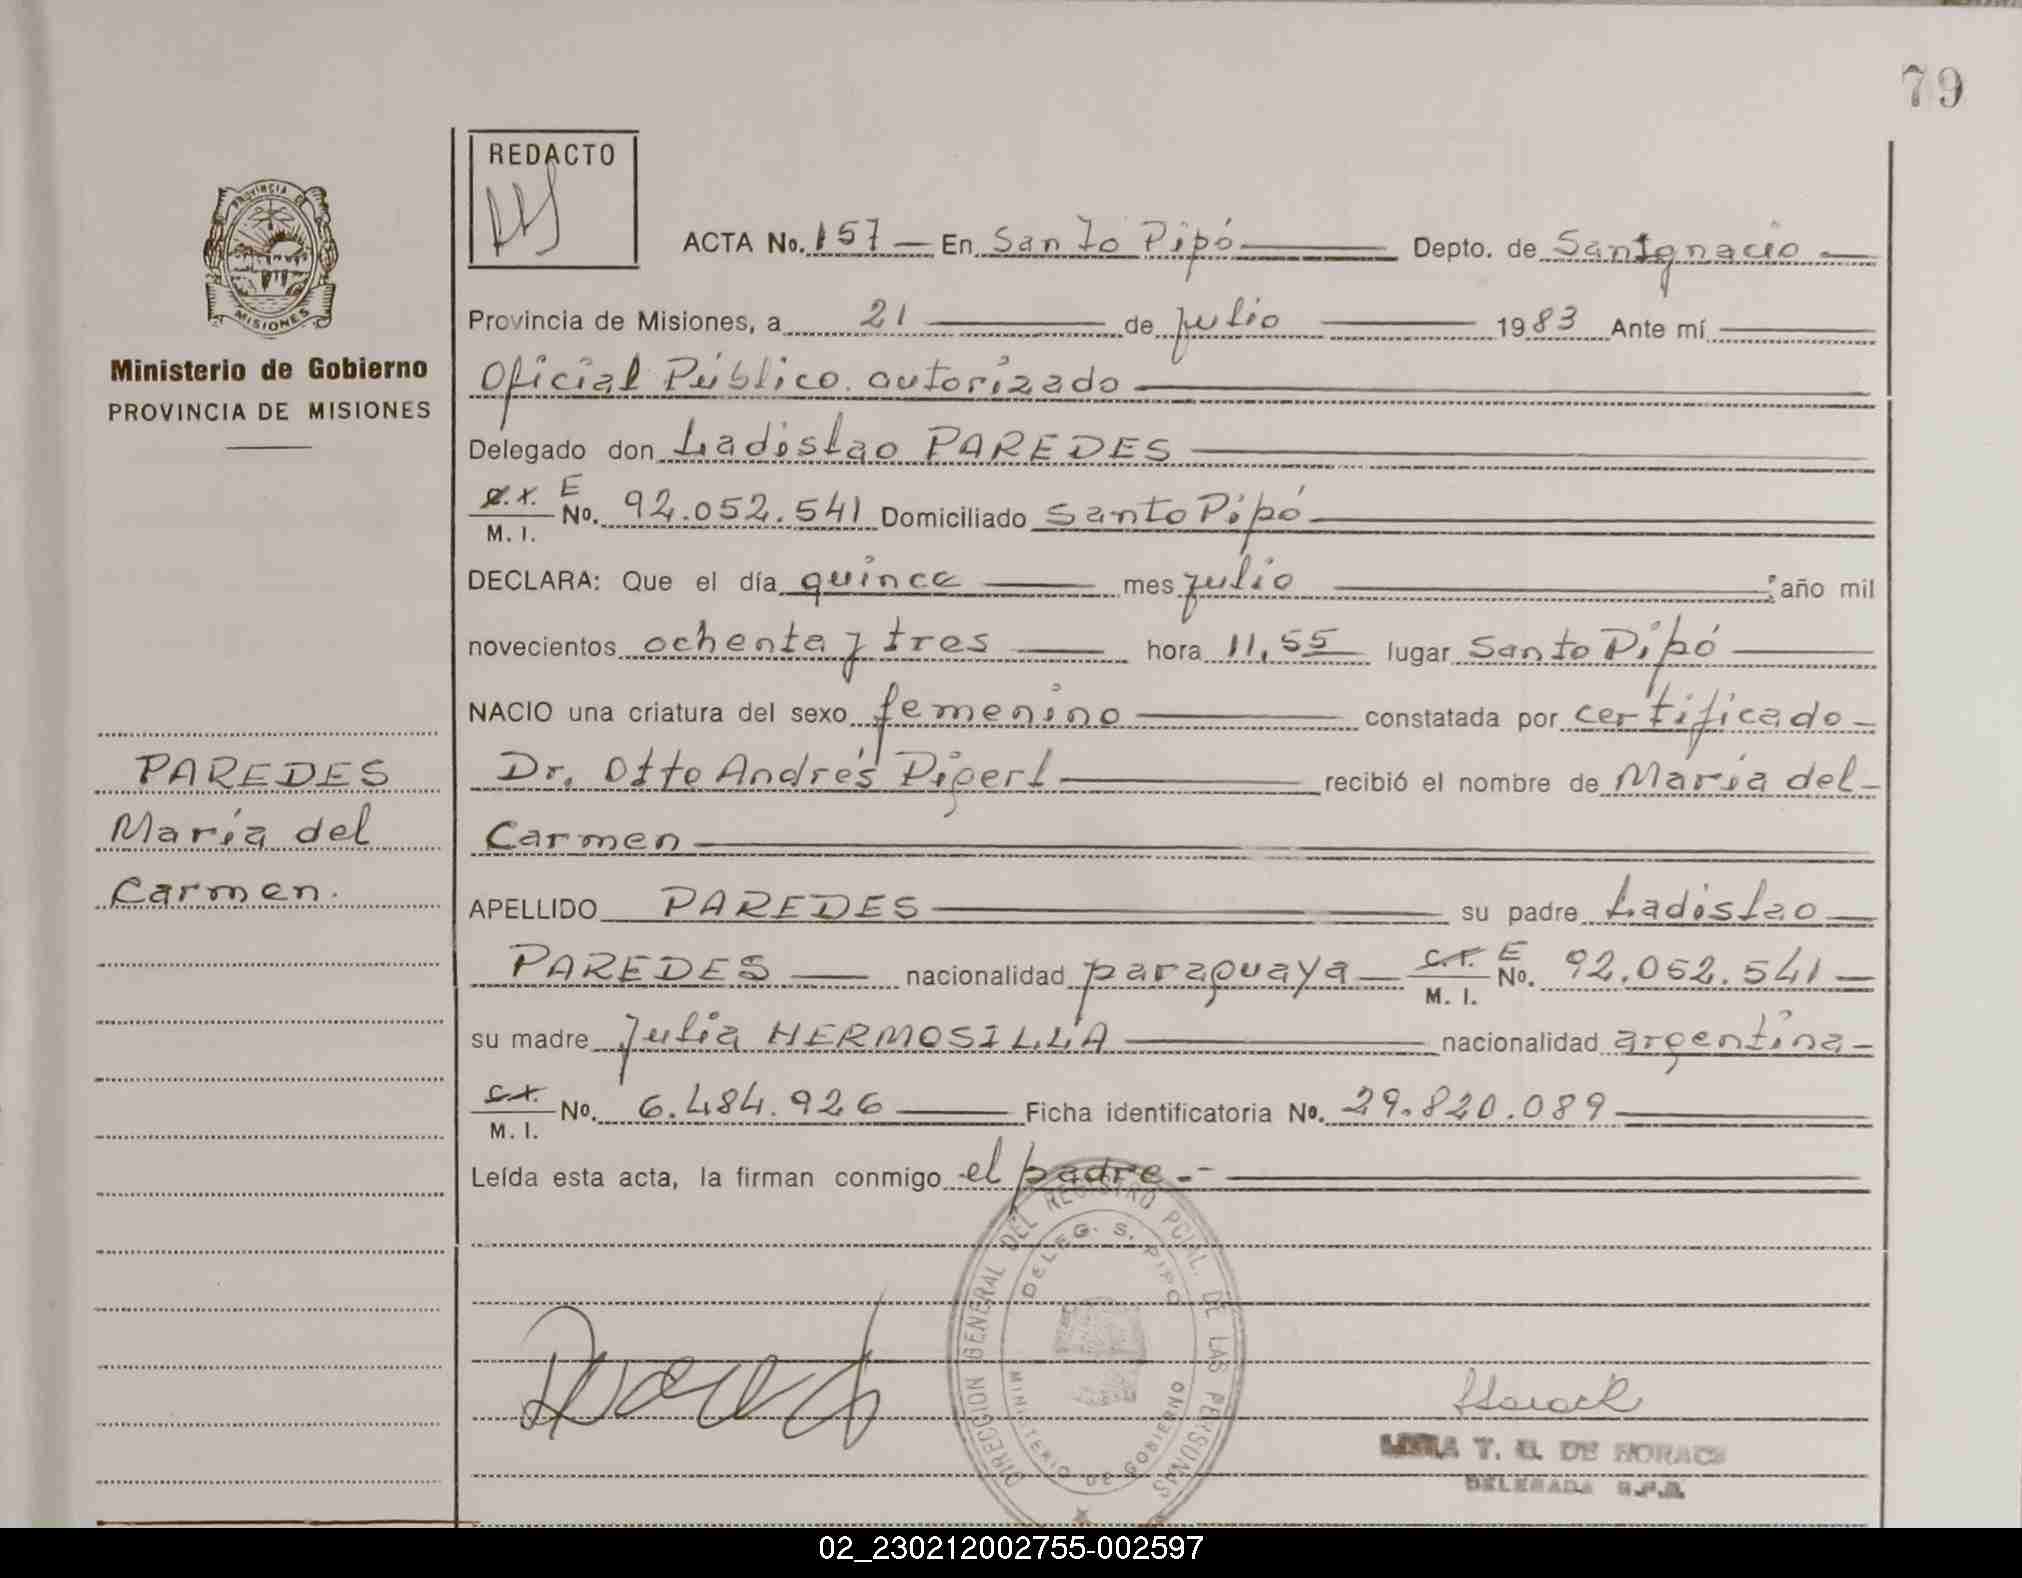 79
REDACTO
PROVINCIA DE
MISIONES
Ministerio de Gobierno
PROVINCIA DE MISIONES
ACTA No. 157 — En Santo Pipó — Depto. de San Ignacio —
Provincia de Misiones, a 21 — de julio — 1983 Ante mí —
Oficial Público autorizado —
Delegado don Ladislao PAREDES —
C.I. E
M. I. No. 92.052.541 Domiciliado Santo Pipó —
DECLARA: Que el día quince — mes julio — ; año mil
novecientos ochenta y tres — hora 11,55 lugar Santo Pipó —
NACIO una criatura del sexo femenino — constatada por certificado —
Dr. Otto Andrés Pigerl — recibió el nombre de María del —
Carmen —
APELLIDO PAREDES — su padre Ladislao —
PAREDES — nacionalidad paraguaya — C.I. E
M. I. No. 92.052.541 —
su madre Julia HERMOSILLA — nacionalidad argentina —
C.I.
M. I. No. 6.484.926 — Ficha identificatoria No. 29.820.089 —
Leída esta acta, la firman conmigo el padre.- —
PAREDES
María del
Carmen.
DIRECCION GENERAL DEL REGISTRO PCIAL. DE LAS PERSONAS
DELEG. S. PIPO
MINISTERIO DE GOBIERNO
T. G. DE HORACK
DELEGADA R.P.P.
02_230212002755-002597